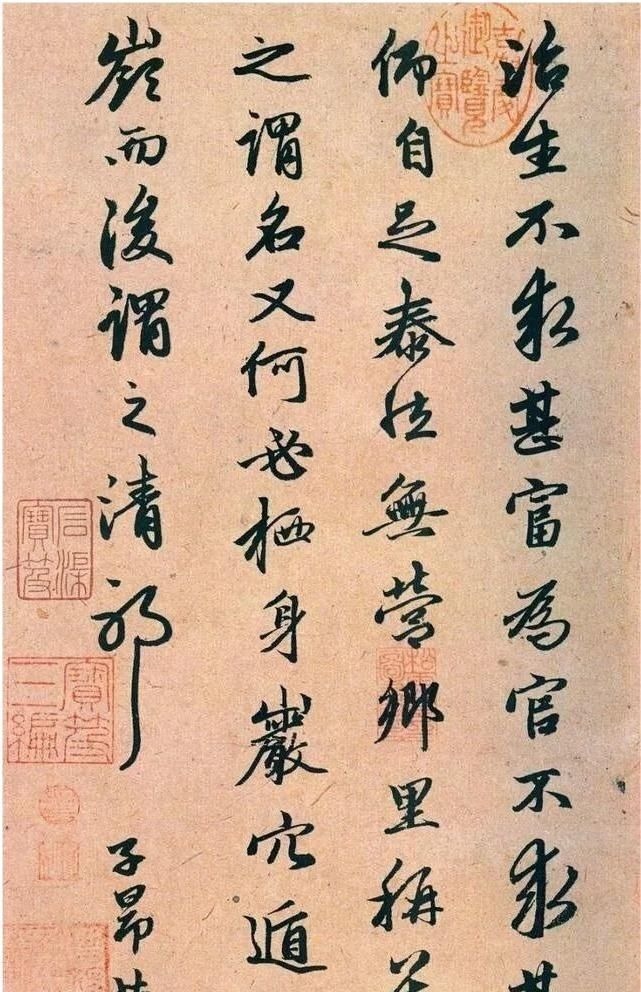 治生不求甚富為官不求甚
仰自足泰恬無營鄉里稱善
之謂名又何必栖身巖穴遁
嶺而後謂之清耶
子昂
嘉慶御覽之寶
石渠寶笈
寶笈三編